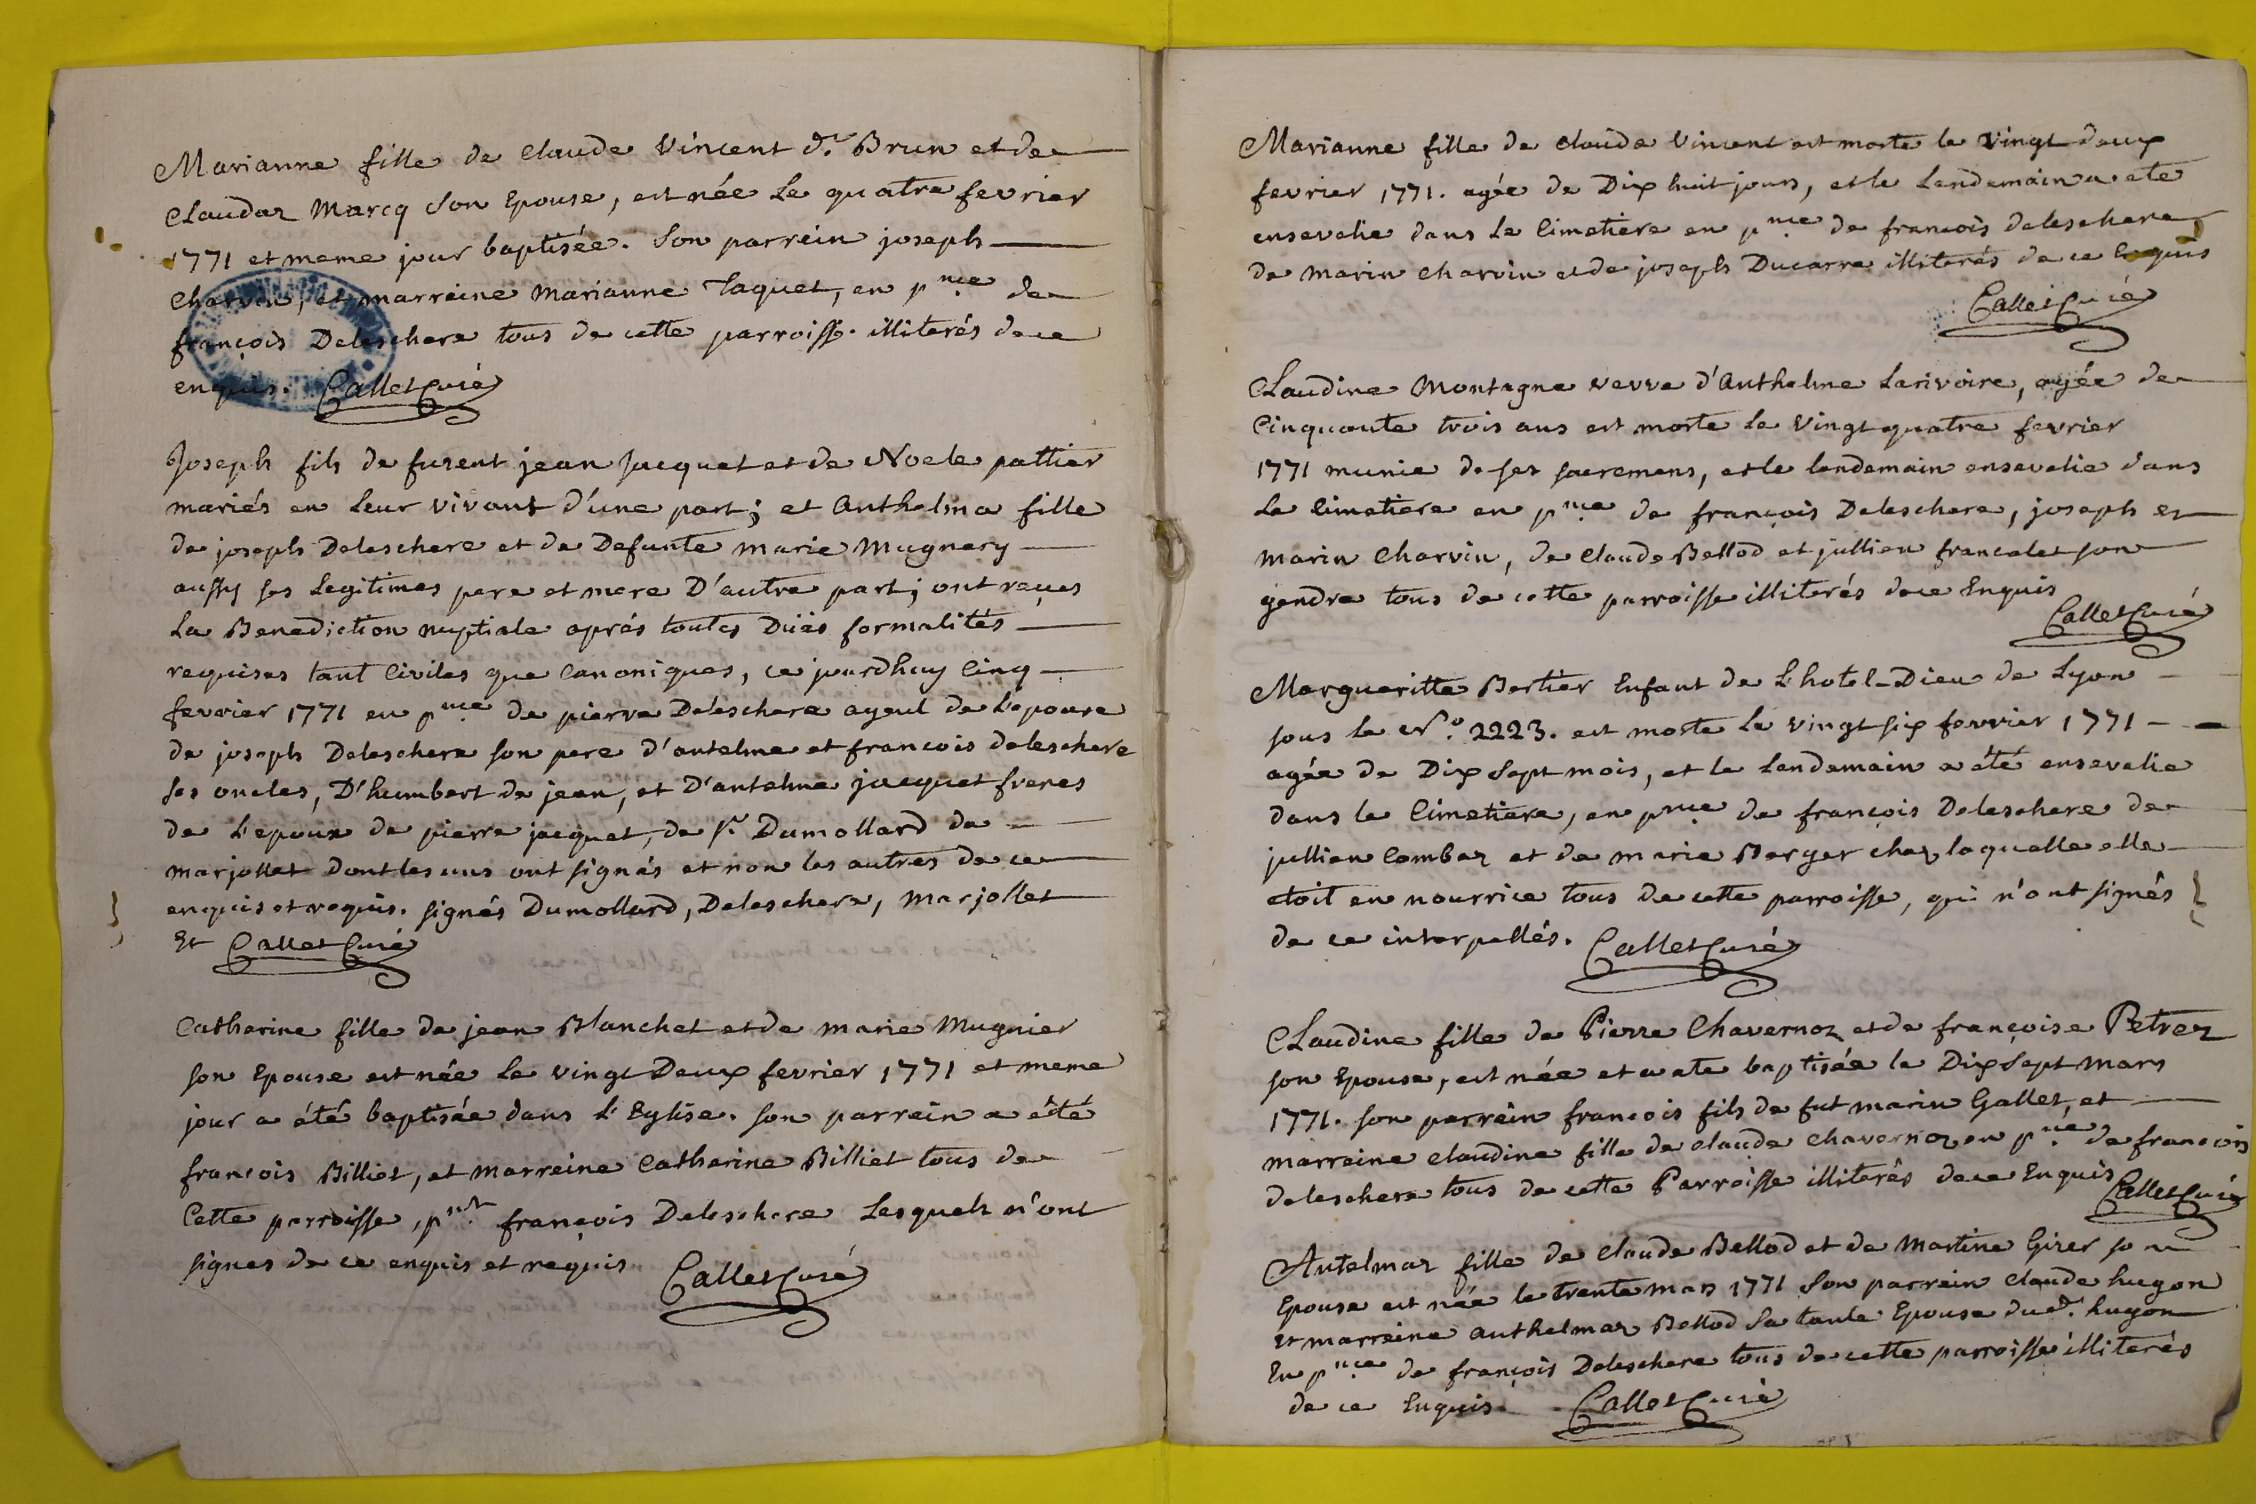 Marianne fille de claude Vincent d.t Brun et de
claudaz Marcq son Epouse, est née Le quatre fevrier
1771 et meme jour baptisée. son parrein joseph
Charvin, et marreine Marianne Taquet, en p.nce de
françois Deleschere tous de cette parroisse. illiterés de ce
enquis. Callet Curé
Joseph fils de furent jean Jacquet et de Noele pattier
mariés en Leur vivant d'une part; et Anthelma fille
de joseph Deleschere et de Defunte marie Mugnery
aussy ses Legitimes pere et mere D'autre part; ont reçues
La Benediction nuptiale après toutes Düës formalités
requises tant Civiles que Canoniques, ce jourdhuy Cinq
fevrier 1771 en p.nce de pierre Deleschere ayeul de L'epouse
de joseph Deleschere son pere d'antelme et francois deleschere
ses oncles, D'humbert de jean, et D'antelme jacquet freres
de L'epoux de pierre jacquet, de s.r Dumollard de
marjollet dont les uns ont signés et non les autres de ce
enquis et requis. signés Dumollard, Deleschere, Marjollet
Et Callet Curé
Catherine fille de jean Blanchet et de marie Mugnier
son Epouse est née Le vingt Deux fevrier 1771 et meme
jour a été baptisée dans L'Eglise. son parrein a été
francois Billiet, et marreine Catherine Billiet tous de
Cette parroisse, p.nt françois Deleschere Lesquels n'ont
signes de ce enquis et requis Callet Curé
Marianne fille de claude Vincent est morte le vingt deux
fevrier 1771. agée de Dix huit jours, et le Lendemain a ete
ensevelie dans Le Cimetiere en p.nce de francois deleschere
de marin charvin et de joseph Ducarre illiterés de ce Enquis
Callet Curé
Claudine Montagne veuve d'Anthelme Larivoire, agée de
Cinquante trois ans est morte Le Vingt quatre fevrier
1771 munie de ses sacremens, et le lendemain ensevelie dans
Le Cimetiere en p.nce de françois Deleschere, joseph et
marin Charvin, de Claude Bellod et jullien francalet son
gendre tous de cette parroisse illiterés de ce Enquis
Callet Curé
Margueritte Bertier Enfant de L'hotel-Dieu de Lyon
sous Le N.o 2223. est morte Le vingt six fevrier 1771
agée de Dix sept mois, et le Lendemain a été ensevelie
dans le Cimetiere, en p.nce de françois Deleschere de
jullien Combaz et de marie Berger chez laquelle elle
etoit en nourrice tous de cette parroisse, qui n'ont signés
de ce interpellés. Callet Curé
Claudine fille de Pierre Chavernoz et de françoise Petrez
son Epouse, est née et a ete baptisée le Dix sept mars
1771. son parrein francois fils de fut marin Gallet, et
marreine claudine fille de claude chavernoz en p.nce de francois
deleschere tous de cette Parroisse illiterés de ce Enquis Callet Curé
Antelmaz fille de claude Bellod et de Martine Girer son
Epouse est née le trente mars 1771 son parrein claude hugon
et marreine anthelmaz Bellod sa tante Epouse dud.t hugon
En p.nce de françois Deleschere tous de cette parroisse illiterés
de ce Enquis. Callet Curé